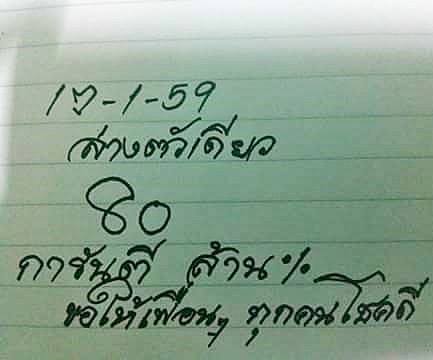 17-1-59
ล่างตัวเดียว
80
การันตี ล้าน%
ขอให้เพื่อนๆ ทุกคนโชคดี